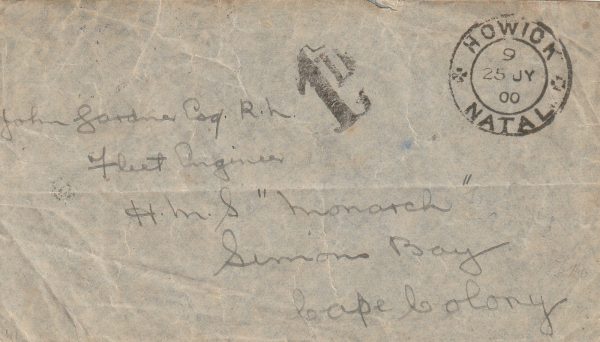 HOWICK
9
25 JY
00
NATAL
1D
John Gardner Esq. R.N.
Fleet Engineer
H.M.S "Monarch"
Simons Bay
Cape Colony